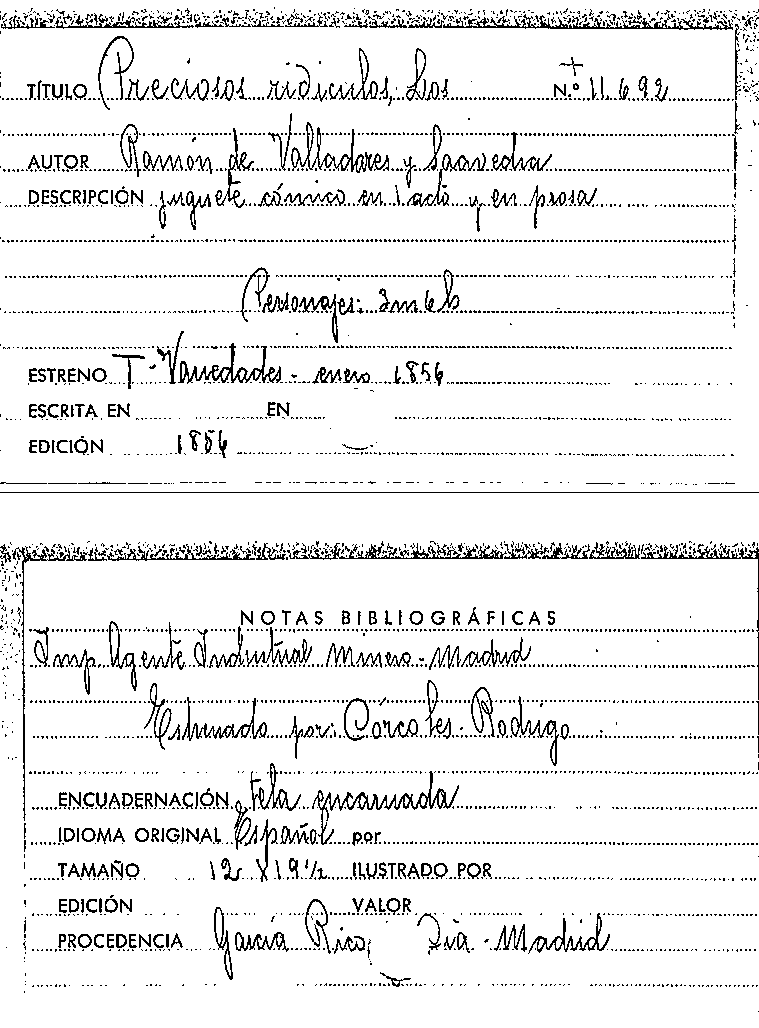 TÍTULO Preciosos ridiculos, Los N.º 11.692
AUTOR Ramón de Valladares y Saavedra
DESCRIPCIÓN juguete cómico en 1 acto y en prosa
Personajes: 3m 6h
ESTRENO T- Variedades - enero 1856
ESCRITA EN EN
EDICIÓN 1856
NOTAS BIBLIOGRÁFICAS
Imp. Agente Industrial Minero - Madrid
Estrenado por: Córcoles - Rodrigo
ENCUADERNACIÓN tela encarnada
IDIOMA ORIGINAL Español por
TAMAÑO 12 X 19 1/2 ILUSTRADO POR
EDICIÓN VALOR
PROCEDENCIA García Rico, Madrid